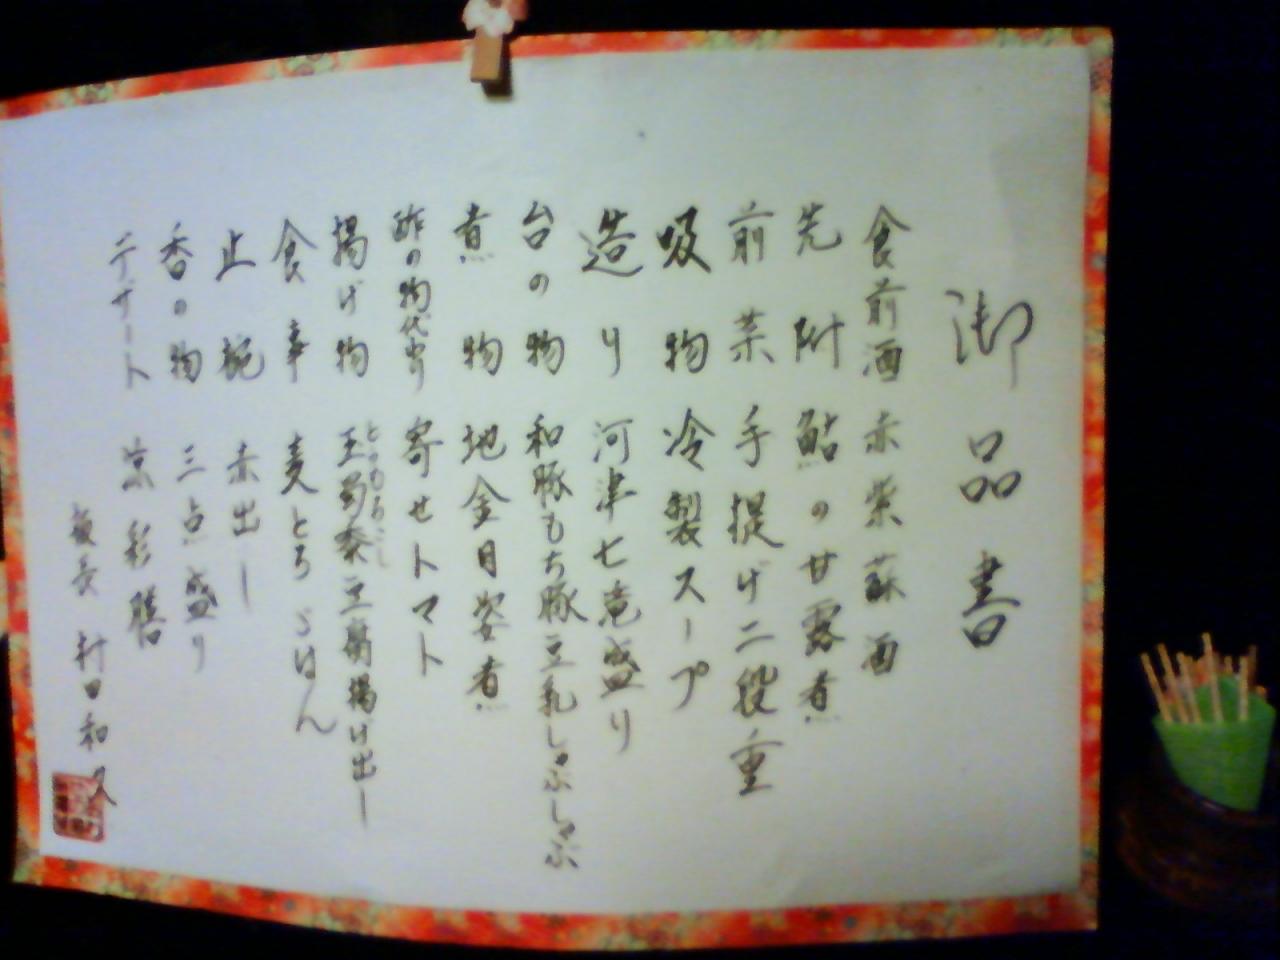 御品書
食前酒 赤紫蘇酒
先附 鮎の甘露煮
前菜 手提げ二段重
吸物 冷製スープ
造り 河津七竜盛り
台の物 和豚もち豚豆乳しゃぶしゃぶ
煮物 地金目姿煮
酢の物代り 寄せトマト
揚げ物 玉蜀黍豆腐揚げ出し
とうもろこし
食事 麦とろごはん
止椀 赤出し
香の物 三点盛り
デザート 涼彩膳
板長 村田和久